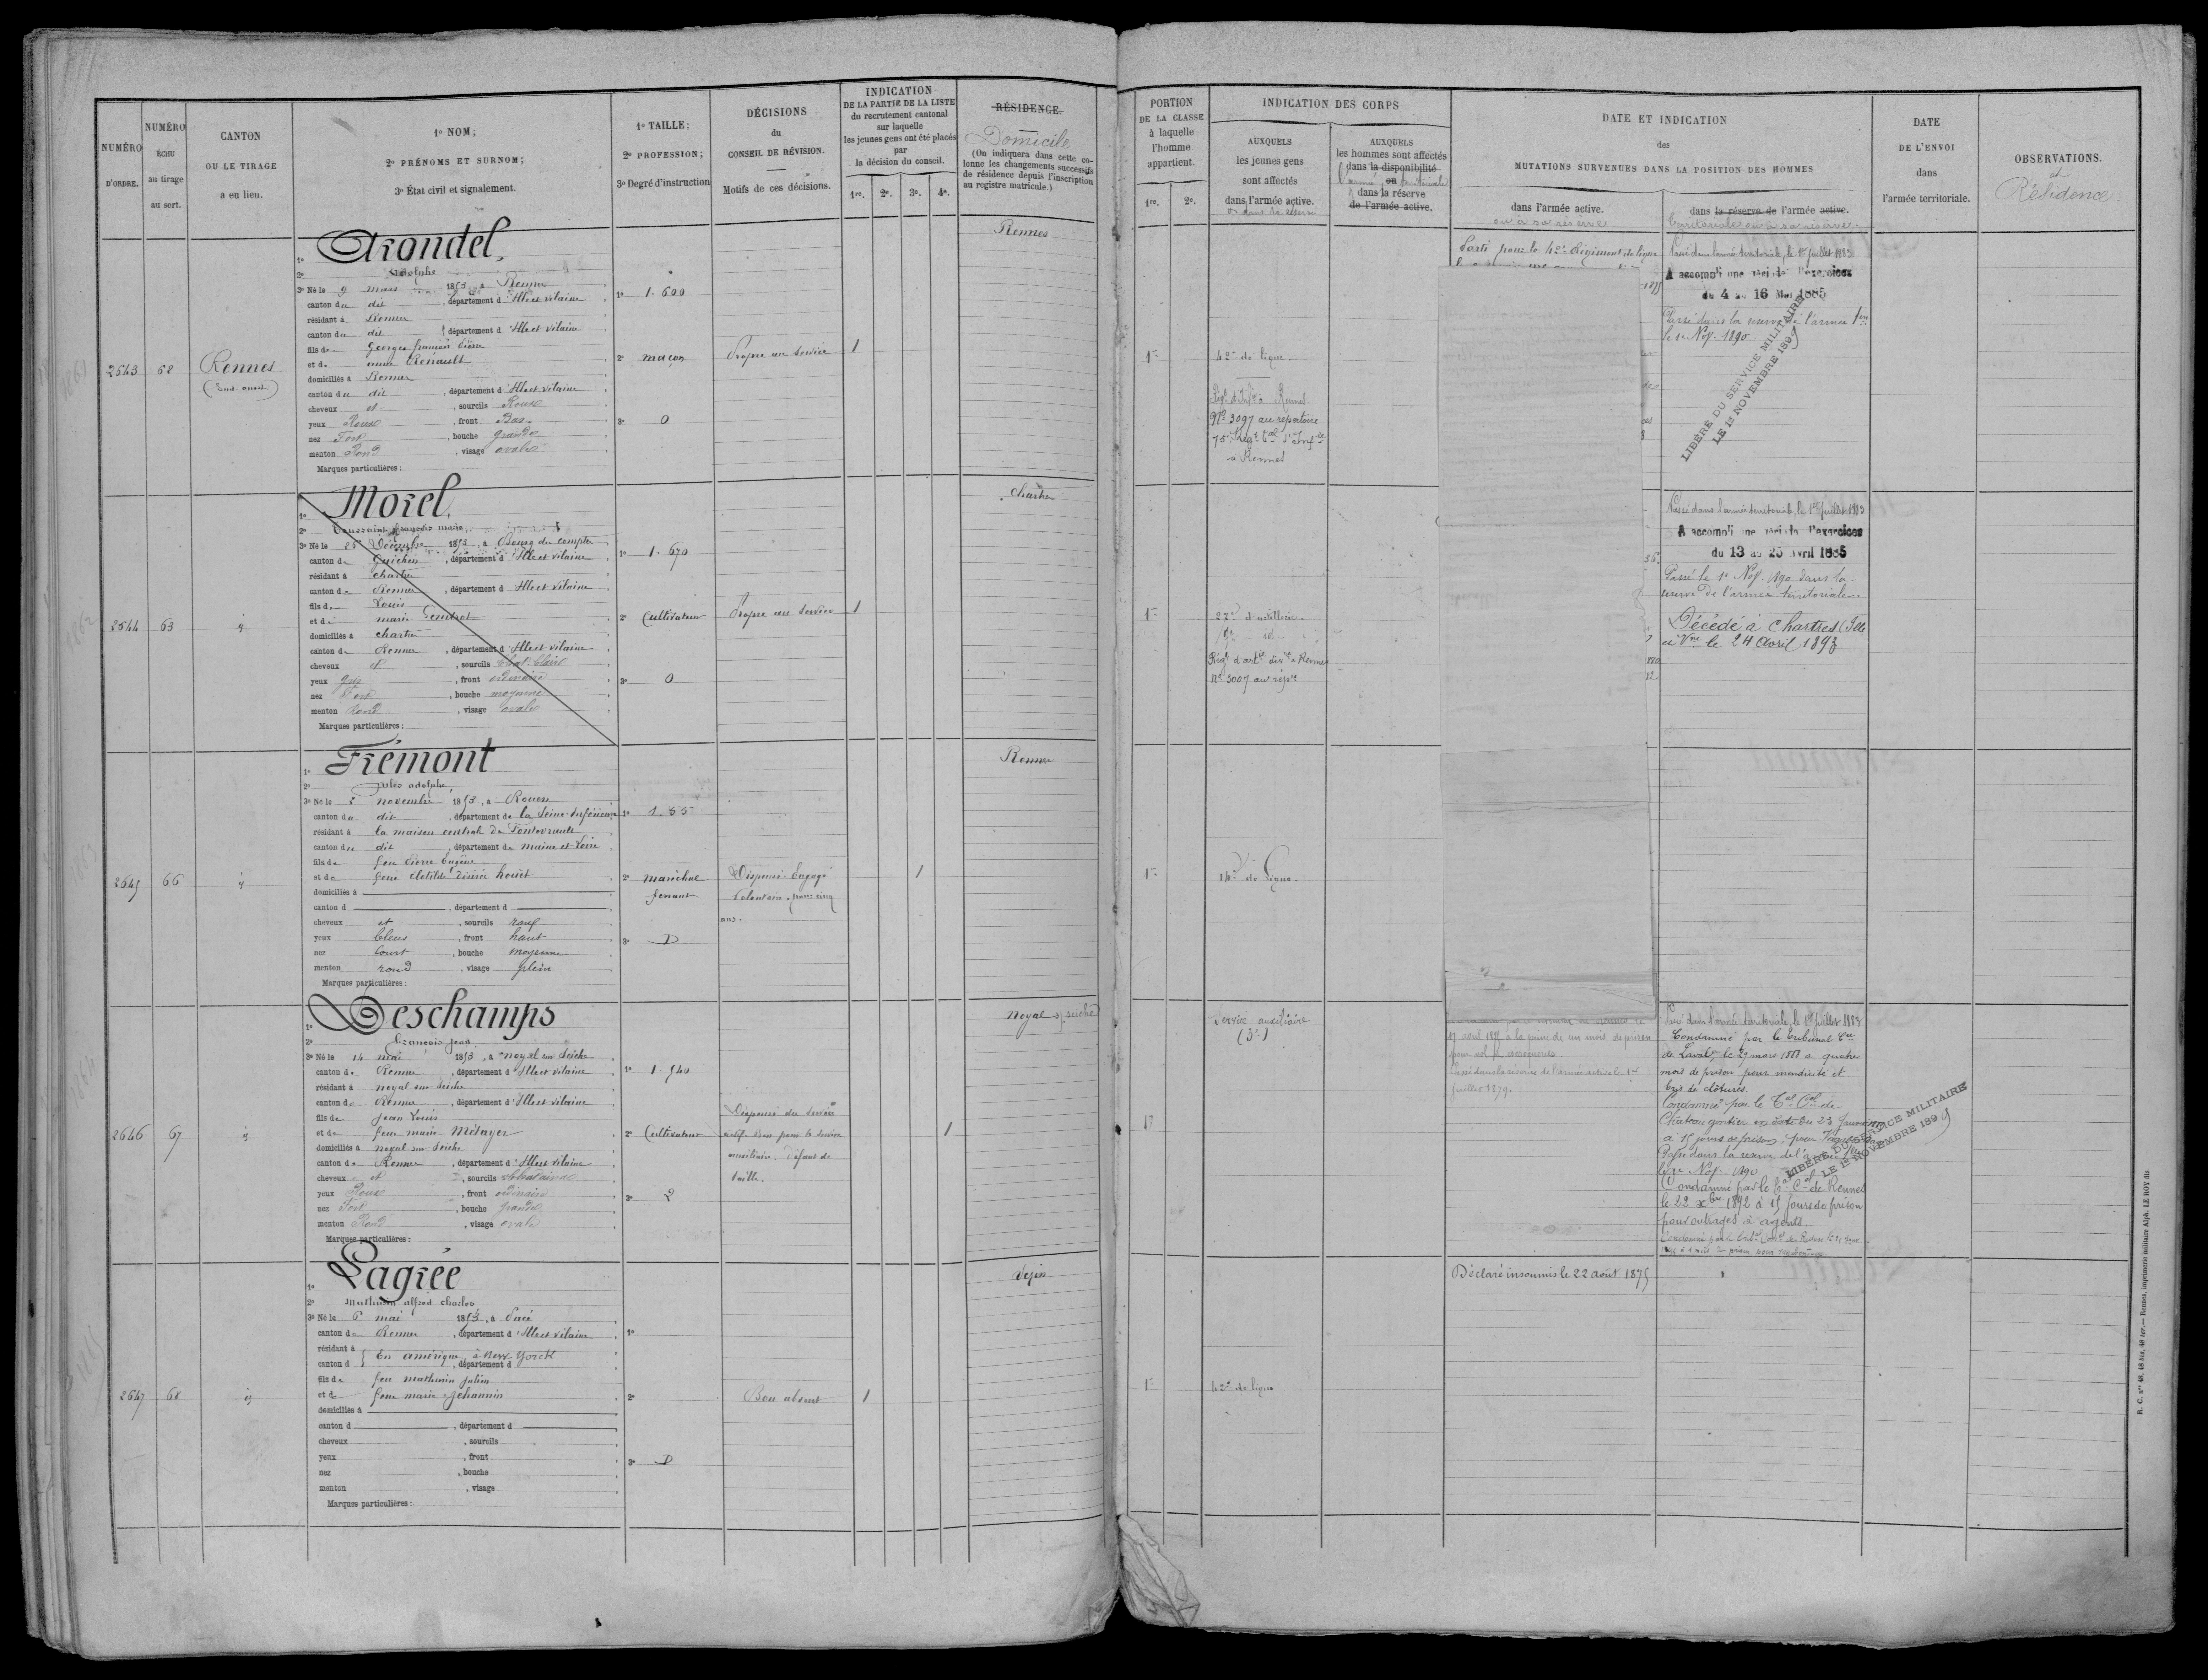 NUMÉRO
D'ORDRE.
NUMÉRO
ÉCHU
au tirage
au sort.
CANTON
OU LE TIRAGE
a eu lieu.
1º NOM;
2º PRÉNOMS ET SURNOM;
3º État civil et signalement.
1º TAILLE;
2º PROFESSION;
3º Degré d'instruction
DÉCISIONS
du
CONSEIL DE RÉVISION.
Motifs de ces décisions.
INDICATION
DE LA PARTIE DE LA LISTE
du recrutement cantonal
sur laquelle
les jeunes gens ont été placés
par
la décision du conseil.
1re. 2e. 3e. 4e.
RÉSIDENCE.
Domicile
(On indiquera dans cette co-
lonne les changements successifs
de résidence depuis l'inscription
au registre matricule.)
PORTION
DE LA CLASSE
à laquelle
l'homme
appartient.
1re. 2e.
INDICATION DES CORPS
AUXQUELS
les jeunes gens
sont affectés
dans l'armée active.
ou dans la réserve
AUXQUELS
les hommes sont affectés
dans la disponibilité
ou
l'armée territoriale
dans la réserve
de l'armée active.
DATE ET INDICATION
des
MUTATIONS SURVENUES DANS LA POSITION DES HOMMES
dans l'armée active.
ou à sa réserve
dans la réserve de l'armée active.
territoriale ou à sa réserve.
DATE
DE L'ENVOI
dans
l'armée territoriale.
OBSERVATIONS.
et
Résidence
2643
62
Rennes
(Sud-ouest)
1º Arondel,
2º Adolphe
3º Né le 9 mars 1853, à Rennes
canton du dit, département d'Ille et vilaine
résidant à Rennes
canton du dit, département d'Ille et vilaine
fils de Georges françois Pierre
et de anne Renault
domiciliés à Rennes
canton du dit, département d'Ille et vilaine
cheveux et, sourcils Roux
yeux Roux, front Bas
nez Fort, bouche grande
menton Rond, visage ovale
Marques particulières :
1º 1.600
2º maçon
3º 0
Propre au service
1
Rennes
1re
42e de ligne.
Régt d'Inf. à Rennes
Nº 3097 au répertoire
75e Régt tal d'Infie
à Rennes
Parti pour le 42e Régiment de ligne
Passé dans l'armée territoriale, le 1er juillet 1883
A accompli une période d'exercices
du 4 au 16 Mai 1885
Passé dans la réserve de l'armée terre
le 1e Nov. 1890
LIBÉRÉ DU SERVICE MILITAIRE
LE 1er NOVEMBRE 1899
2644
63
id
1º Morel,
2º Toussaint françois marie
3º Né le 25 Décembre 1853, à Bourg des comptes
canton de Guichen, département d'Ille et vilaine
résidant à chartres
canton de Rennes, département d'Ille et vilaine
fils de Louis
et de marie Gendrot
domiciliés à chartres
canton de Rennes, département d'Ille et vilaine
cheveux et, sourcils chat. clairs
yeux gris, front ordinaire
nez Fort, bouche moyenne
menton Rond, visage ovale
Marques particulières :
1º 1.670
2º Cultivateur
3º 0
Propre au service
1
Chartres
1re
27e d'artillerie.
Régt d'artie div. à Rennes
Nº 3007 au repre
Passé dans l'armée territoriale, le 1er juillet 1883
A accompli une période d'exercices
du 13 au 25 Avril 1885
Passé le 1e Nov. 1890 dans la
réserve de l'armée territoriale.
Décédé à Chartres (Ille
et Vne le 24 avril 1893
2645
66
id
1º Frémont
2º jules adolphe
3º Né le 2 novembre 1853, à Rouen
canton du dit, département de la Seine-Inférieure
résidant à la maison centrale de Fontevrault
canton du dit, département de maine et Loire
fils de feu Pierre Eugène
et de feue Clotilde désirée houët
domiciliés à
canton d , département d
cheveux et, sourcils roux
yeux bleus, front haut
nez court, bouche moyenne
menton rond, visage plein
Marques particulières :
1º 1.65
2º maréchal
ferrant
3º D
Dispensé. Engagé
volontaire pour cinq
ans.
1
Rennes
1re
14e de ligne.
2646
67
id
1º Deschamps
2º François jean
3º Né le 14 mai 1853, à noyal sur Seiche
canton de Rennes, département d'Ille et vilaine
résidant à noyal sur seiche
canton de Rennes, département d'Ille et vilaine
fils de jean Louis
et de feue marie Métayer
domiciliés à noyal sur Seiche
canton de Rennes, département d'Ille et vilaine
cheveux et, sourcils chatains
yeux Roux, front ordinaire
nez Fort, bouche grande
menton Rond, visage ovale
Marques particulières :
1º 1.540
2º Cultivateur
3º 2
Dispensé du service
actif. Bon pour le service
auxiliaire, défaut de
taille.
1
noyal s/ seiche
Service auxiliaire
17 avril 1878 à la peine de un mois de prison
pour vol et escroquerie
Passé dans la réserve de l'armée active le 1er
juillet 1879.
Passé dans l'armée territoriale, le 1er juillet 1883
Condamné par le tribunal Cel
de Laval, le 29 mars 1888 à quatre
mois de prison pour mendicité et
bris de clôtures
Condamné par le Tal Cel de
Chateau gontier en date du 23 Janvier
à 15 jours de prison, pour
Passé dans la réserve de l'armée tre
le 1e Nov. 1890
Condamné par le Tal Cel de Rennes
le 22 xbre 1892 à 15 Jours de prison
pour outrages à agents.
LIBÉRÉ DU SERVICE MILITAIRE
LE 1er NOVEMBRE 1899
2647
68
id
1º Lagrée
2º Mathurin alfred Charles
3º Né le 6 mai 1853, à Pacé
canton de Rennes, département d'Ille et vilaine
résidant à En amérique, à New-Yorck
canton d , département d
fils de feu mathurin julien
et de feue marie jehannin
domiciliés à
canton d , département d
cheveux , sourcils
yeux , front
nez , bouche
menton , visage
Marques particulières :
1º
2º
3º D
Bon absent
1
Vezin
1re
42e de ligne
Déclaré insoumis le 22 août 1875
R. C. nos 48, 48 bis, 48 ter.— Rennes, imprimerie militaire Alph. LE ROY fils